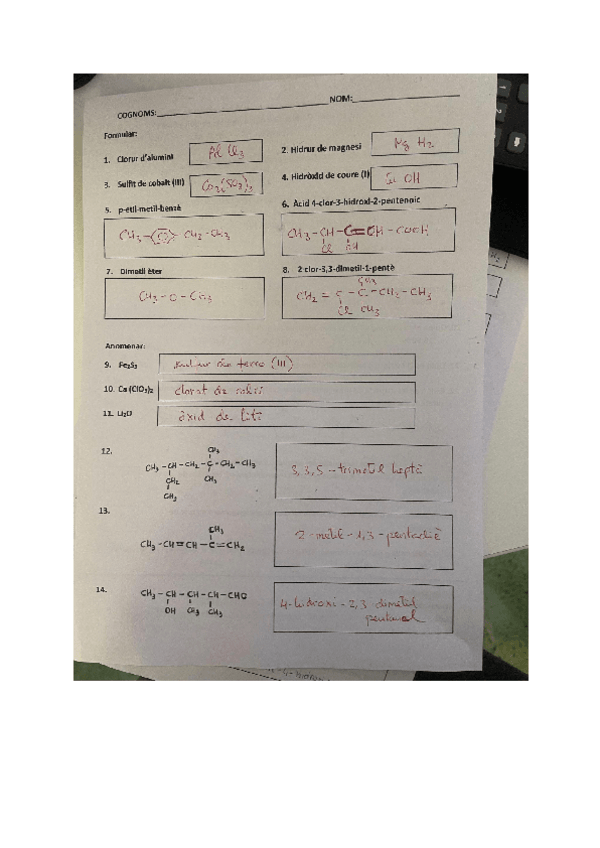 COGNOMS: NOM:
Formular:
1. Clorur d'alumini Al Cl₃ 2. Hidrur de magnesi Mg H₂
3. Sulfit de cobalt (III) Co₂(SO₃)₃ 4. Hidròxid de coure (I) Cu OH
5. p-etil-metil-benzè 6. Àcid 4-clor-3-hidroxi-2-pentenoic
CH₃- CH₂-CH₃ CH₃-CH-C=CH-COOH
Cl OH
7. Dimetil èter 8. 2-clor-3,3-dimetil-1-pentè
CH₃-O-CH₃ CH₃
CH₂=C-C-CH₂-CH₃
Cl CH₃
Anomenar:
9. Fe₂S₃ sulfur de ferro (III)
10. Ca(ClO₃)₂ clorat de calci
11. Li₂O òxid de liti
12. CH₃
CH₃-CH-CH₂-C-CH₂-CH₃
CH₂ CH₃
CH₃
3,3,5-trimetil heptà
13. CH₃
CH₃-CH=CH-C=CH₂
2-metil-1,3-pentadiè
14. CH₃-CH-CH-CH-CHO
OH CH₃ CH₃
4-hidroxi-2,3-dimetil
pentanal